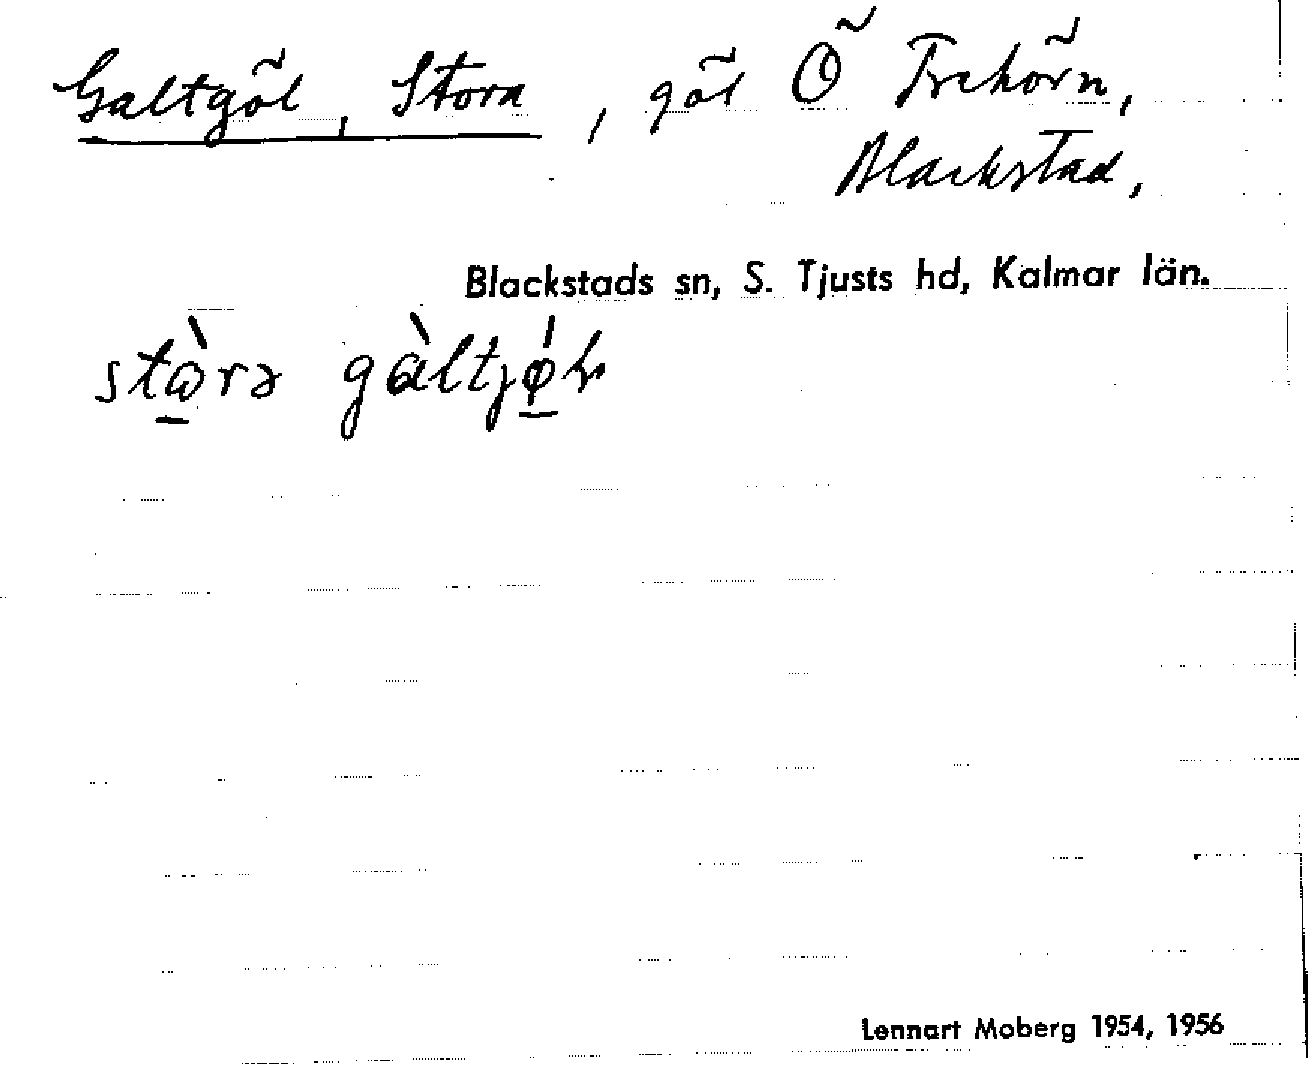 Galtgöl, Stora, göl Ö Trehörn,
Blackstad,
Blackstads sn, S. Tjusts hd, Kalmar län.
stὼrə gàltjǿl
Lennart Moberg 1954, 1956